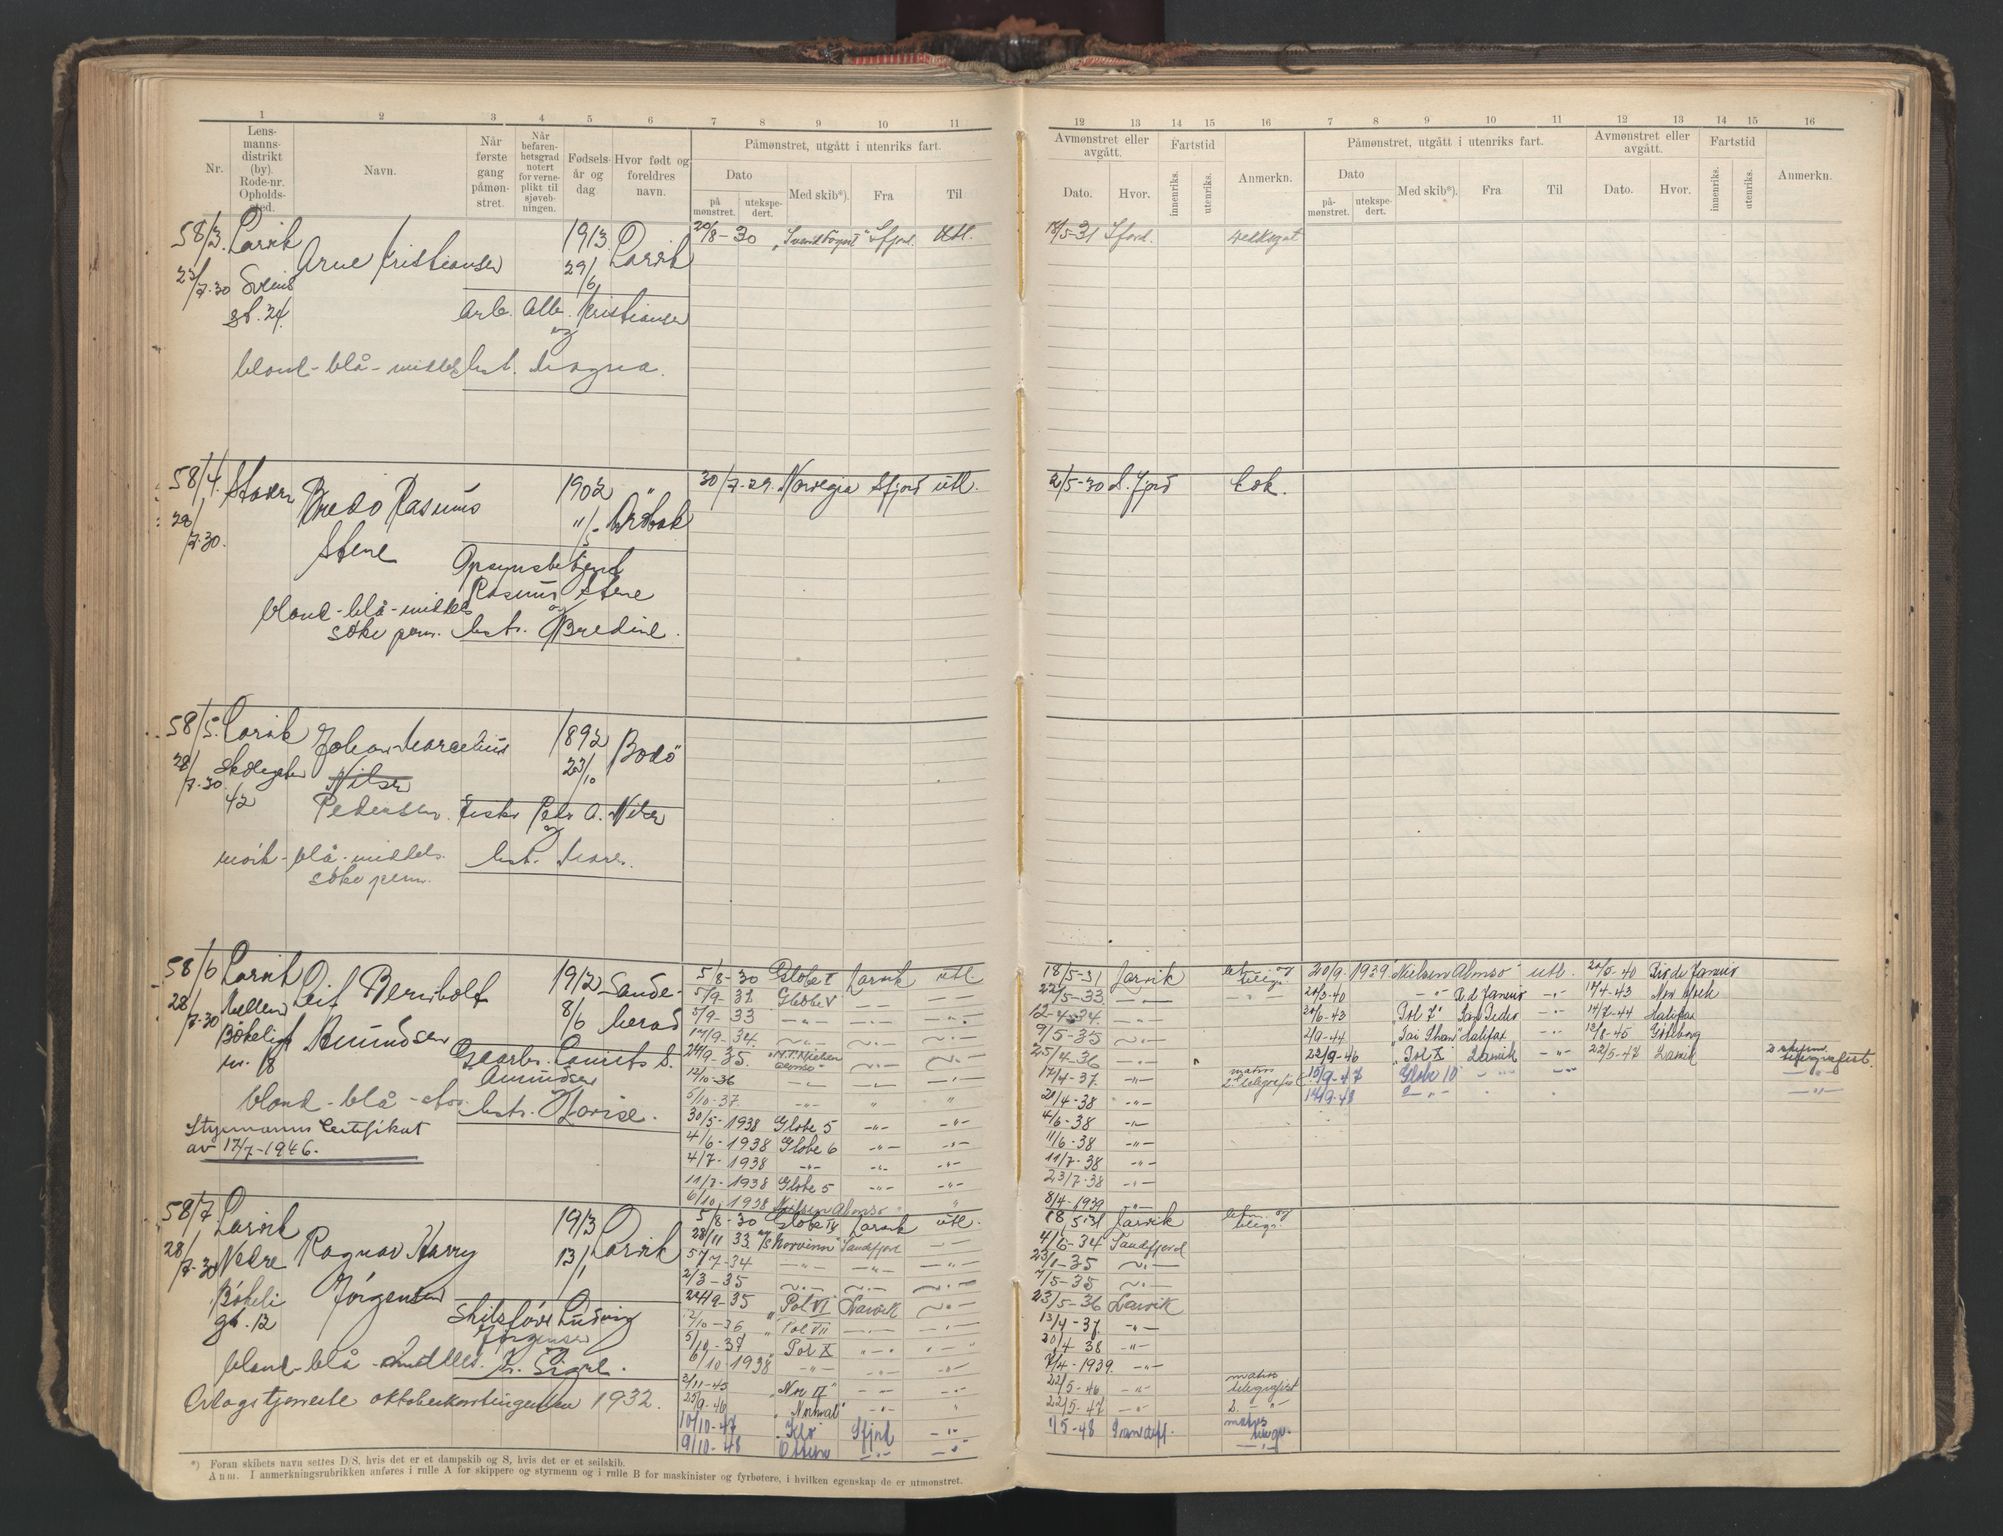 1 2 3 4 5 6 7 8 9 10 11
Lensmannsdistrikt (by). Rode-nr. Opholdssted.
Nr. Navn. Når første gang påmønstret. Når befarenhetsgrad notert for verneplikt til sjøvebningen. Fødselsår og dag. Hvor født og foreldres navn.
Påmønstret, utgått i utenriks fart.
Dato Med skib*). Fra Til
på mønstret. utekspedert.
12 13 14 15 16 7 8 9 10 11 12 13 14 15 16
Avmønstret eller avgått. Fartstid Anmerkn. Påmønstret, utgått i utenriks fart. Avmønstret eller avgått. Fartstid Anmerkn.
Dato. Hvor. innenriks. utenriks. Dato Med skib*). Fra Til Dato. Hvor. innenriks. utenriks.
påmønstret. utekspedert.
58/3. Larvik Arne Kristiansen 1913 Larvik 20/8-30 "Svend Foyn I" Sfjord Utl. 18/5-31 Sfjord.
7.30 Sveins 29/6
gt. 24. arb. Alb. Kristiansen
og
blond - blå - middels hst. Magna.
58/4. Stavern Bredo Rasmus 1902 30/7-29. Norvegia Sfjord utl. 2/5-30 S. fjord Kok.
7.30. Stene 11/5
Opsynsbetjent
Rasmus Stene
og
blond - blå - middels
søke perm. hst. Bredine.
58/5. Larvik Johan Marcelius 1892 Bodø
28/7-30 Skolegaten Nilsen 23/10
42 Pedersen. fisker Peder A. Nilsen
og
mørk - blå - middels. hst.
søke perm.
58/6 Larvik Leif Bernholt 1912 Sandeherad 5/8-30 Globe I Larvik utl 18/5-31 Larvik 20/9.1939. Nielsen Alonso utl. 20/5-40 Rio de Janeiro
28/7-30 Mellem Amundsen 8/6 5/9-32 Globe V 22/5-33. 20/3-40 R. d Janeiro 18/4-43 New York
Bøkeligt 5/9-33 12-4-34. 20/6-43 "Pol X" San Pedro 14/7-44 Halifax
nr. 18 Garb. Laurits S. 17/9-34. 9/5-35 2/9-44 "Tai Shan" Halifax 13/8-45 Gøteborg
og Amundsen 24/9-35. "N.T. Nielsen Alonso" 25/4-36 22/9-46 "Pol X" Larvik 22/5-47 Larvik telegrafist.
12/10-36 17/4-37. matros 2. telegrafist 15/9-47 Globe 10
blond - blå - stor. hst. Lovise. 5/10-37. 20/4-38 14/9-48
Styrmanns Certifikat 30/5-1938 Globe 5 4/6-38
av 17/7-1946. 4/6-1938 Globe 6 11/6-38
4/7-1938 11/7-38
11/7-1938 Globe 5 23/7-38
6/10.1938 Nielsen Alonso 8/4-1939
58/7 Larvik Ragnar Harry 1913 Larvik 5/8-30 Globe IV Larvik utl. 18/5-31 Larvik
28/7-30 Nedre Jørgensen 13/1 28/11 33. "Norvinn" Sandfjord 4/6-34 Sandfjord
Bøkeli 5/7-34 23/1-35
gt. 12 2/3-35 7/5-35
Skibsfører Ludvig 24/9-35 "Pol VI" Larvik 23/5-36 Larvik
Jørgensen 12/10-36 "Pol VII" 13/4-37.
og 5/10-37 "Pol X 20/4 38
blond - blå - middels. h. Signe. 6/10 1938 7/4-1939
Avlagt tjeneste oktoberkontingenten 1932. 2/11-45 22/5-46 matros telegrafist
25/9-46 "Norhval" 22/5-47 2.
10/10-47 Sfjord 1/5-48 Sandefj. matros telegr.
9/10-48
*) Foran skibets navn settes D/S, hvis det er et dampskib og S, hvis det er et seilskib.
Anm. I anmerkningsrubrikken anføres i rulle A for skippere og styrmenn og i rulle B for maskinister og fyrbøtere, i hvilken egenskap de er utmønstret.